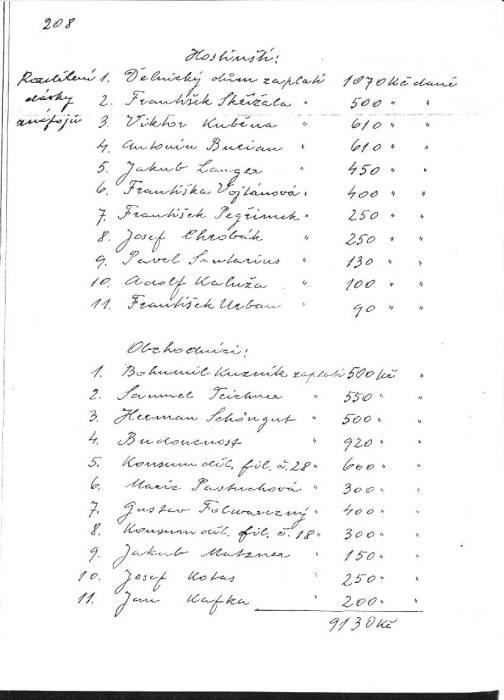 208
Hostinští:
Rozdělení 1. Dělnický dům zaplatí 1070 Kč daně
dávky 2. František Skřížala " 500 " "
z nápojů 3. Viktor Kuběna " 610 " "
4. Antonín Bucian " 610 " "
5. Jakub Langer " 450 " "
6. Františka Vojtánová " 400 " "
7. František Pegřimek " 250 " "
8. Josef Chrobák " 250 " "
9. Pavel Santarius " 130 " "
10. Adolf Kaluža " 100 " "
11. František Urban " 90 " "
Obchodníci:
1. Bohumil Kuzník zaplatí 500 Kč "
2. Samuel Teichner " 550 " "
3. Herman Schöngut " 500 " "
4. Budoucnost " 920 " "
5. Konsum děl. fil. č. 28 " 600 " "
6. Marie Pastuchová " 300 " "
7. Gustav Folwarczný " 400 " "
8. Konsum děl. fil. č. 18 " 300 " "
9. Jakub Matzner " 150 " "
10. Josef Kotas " 250 " "
11. Jan Kafka 200 " "
9130 Kč